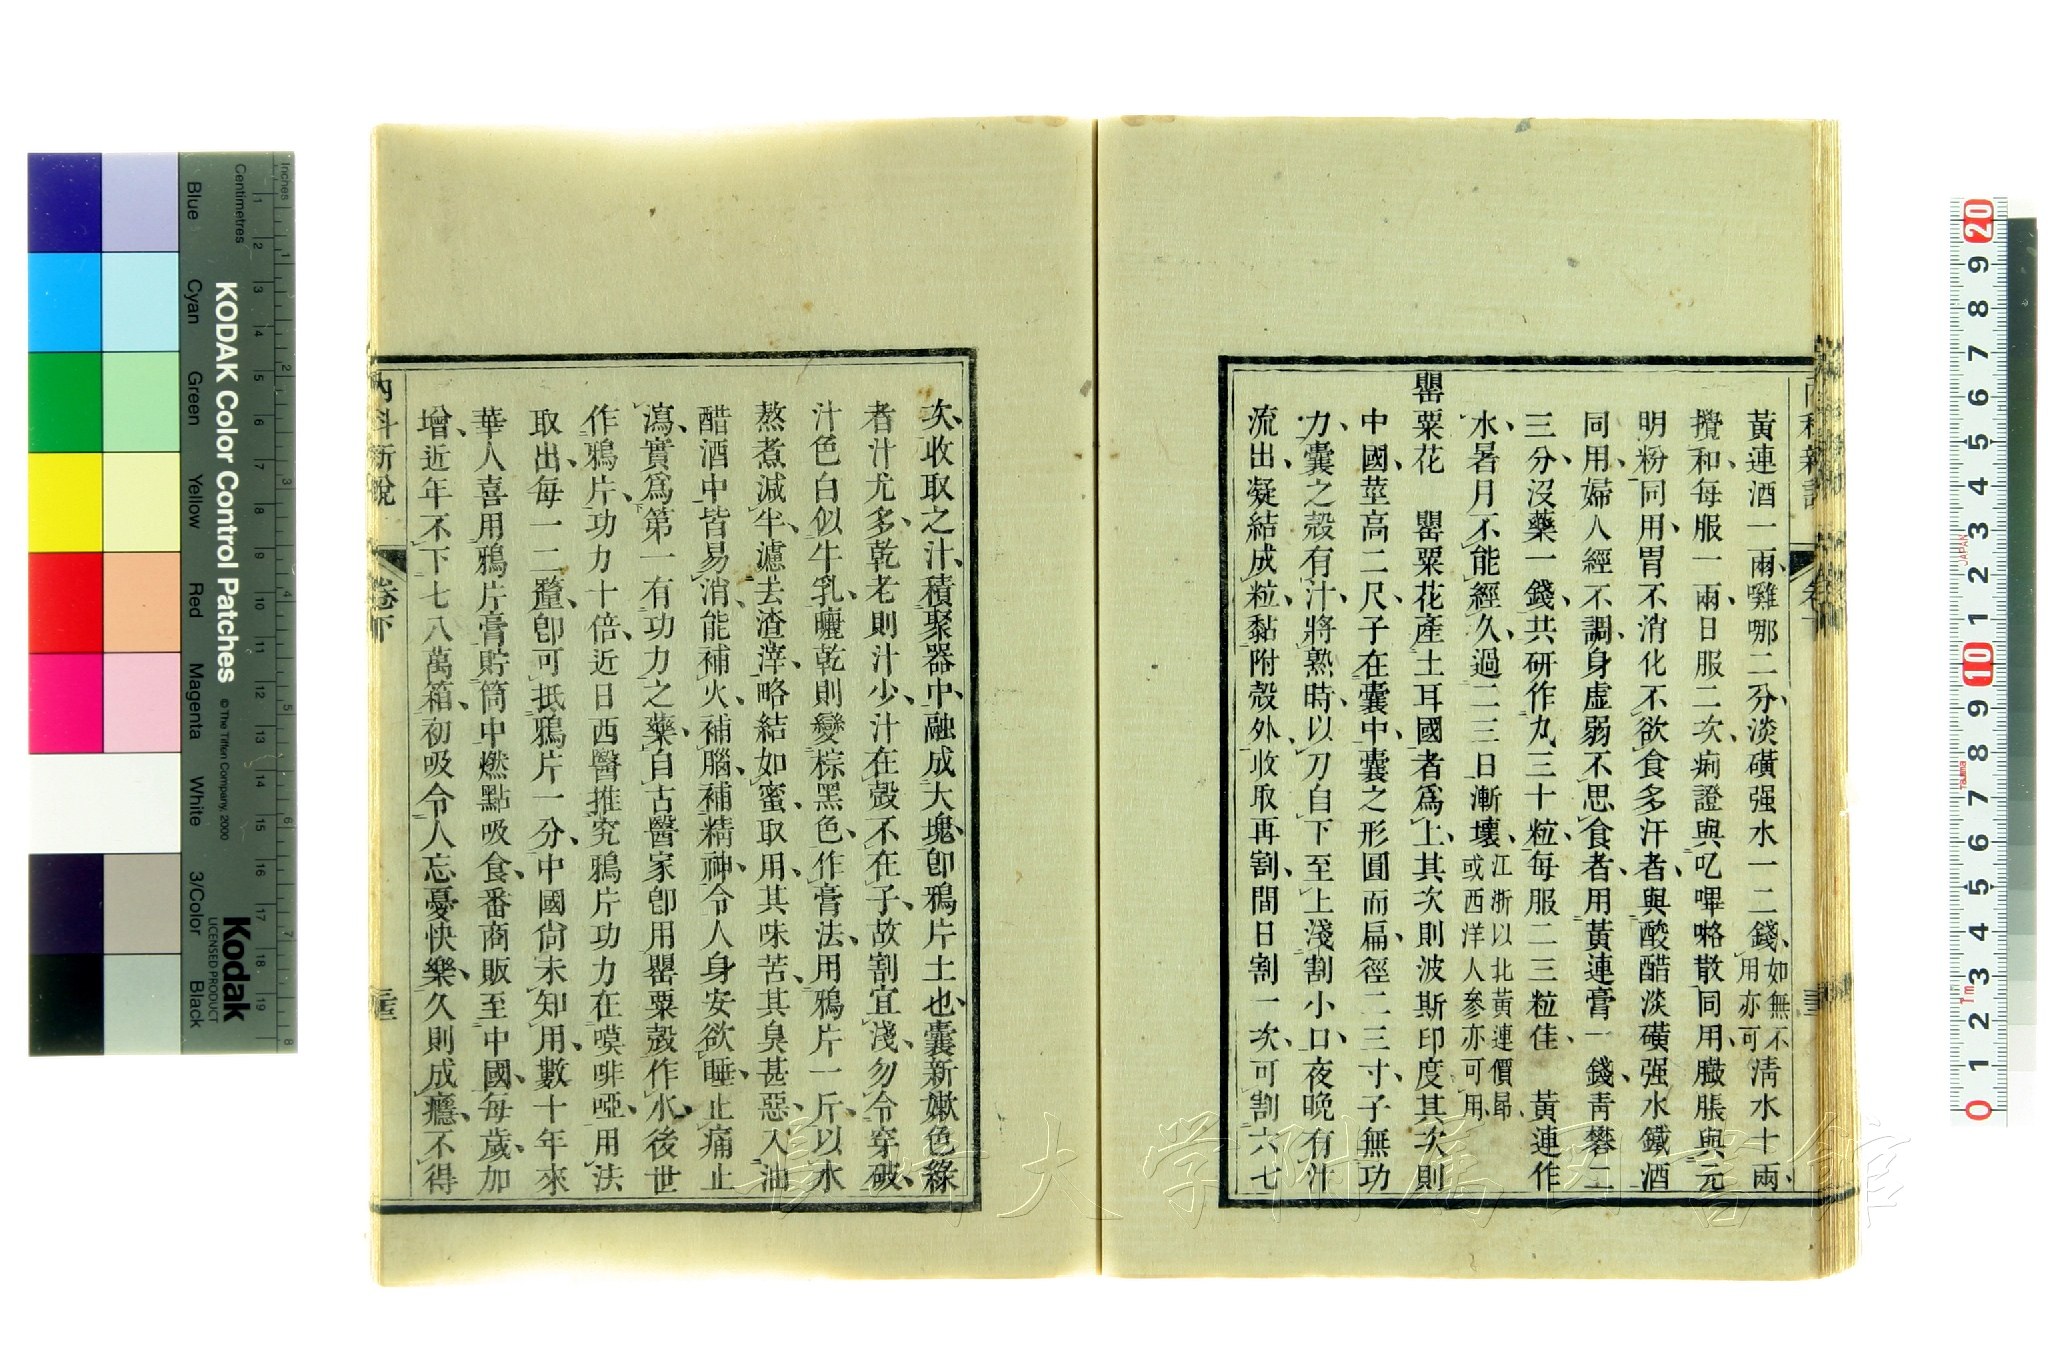 黃連酒一兩、囄哪二分、淡磺强水一二錢、如無不用亦可清水十兩、
攪和、每服一兩、日服二次、痢證與叱嗶㗉散同用、臟脹與元
明粉同用、胃不消化不欲食多汗者、與酸醋淡磺强水鐵酒
同用、婦人經不調、身虛弱不思食者、用黃連膏一錢、靑礬二
三分、沒藥一錢、共研作丸三十粒、每服二三粒佳、　黃連作
水、暑月不能經久、過二三日漸壞、江浙以北黃連價昂、或西洋人參亦可用、
罌粟花　罌粟花產土耳國者爲上、其次則波斯印度、其次則
中國、莖高二尺、子在囊中、囊之形圓而扁、徑二三寸、子無功
力、囊之殼有汁、將熟時、以刀自下至上淺割小口、夜晚有汁
流出、凝結成粒、黏附殼外、收取再割、間日割一次、可割六七
次、收取之汁、積聚器中、融成大塊、卽鴉片土也、囊新嫰色綠
者汁尤多、乾老則汁少、汁在殼不在子、故割宜淺、勿令穿破、
汁色白似牛乳、曬乾則變棕黑色、作膏法、用鴉片一斤、以水
熬煮減半、濾去渣滓、略結如蜜、取用、其味苦、其臭甚惡、入油
醋酒中皆易消、能補火、補腦、補精神、令人身安欲睡、止痛止
瀉、實爲第一有功力之藥、自古醫家卽用罌粟殼作水、後世
作鴉片、功力十倍、近日西醫推究鴉片功力在嘆啡啞、用法
取出、每一二釐、卽可抵鴉片一分、中國尙未知用、數十年來
華人喜用鴉片膏貯筒中燃點吸食、番商販至中國、每歲加
增、近年不下七八萬箱、初吸令人忘憂快樂、久則成癮、不得
內科新說
卷下
KODAK Color Control Patches
© The Tiffen Company, 2000
Kodak
LICENSED PRODUCT
Inches
Centimetres
Blue
Cyan
Green
Yellow
Red
Magenta
White
3/Color
Black
長崎大学附属図書館